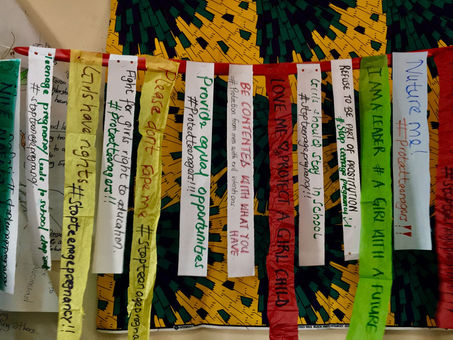 Teenage pregnancy lead to school drop out
#stopteenagepregnancy
Girls have rights
#Stopteenagepregnancy!!
Fight for girls right to education!!
#Protectteenagers!!
Please don't rape me
#Stopteenagepregna
Provide equal opportunities
#Protectteenagers!!!!
BE CONTENTED WITH WHAT YOU HAVE
#Protection from men with evil
LOVE ME & PROTECT A GIRL CHILD
Girls should stay in school
#stopteenagepregnancy!!
REFUSE TO BE PART OF PROSTITUTION
# Stop teenage pregnancy
I AM A LEADER # A GIRL WITH A FUTURE
Nuture me!
#Protectteenagers!!